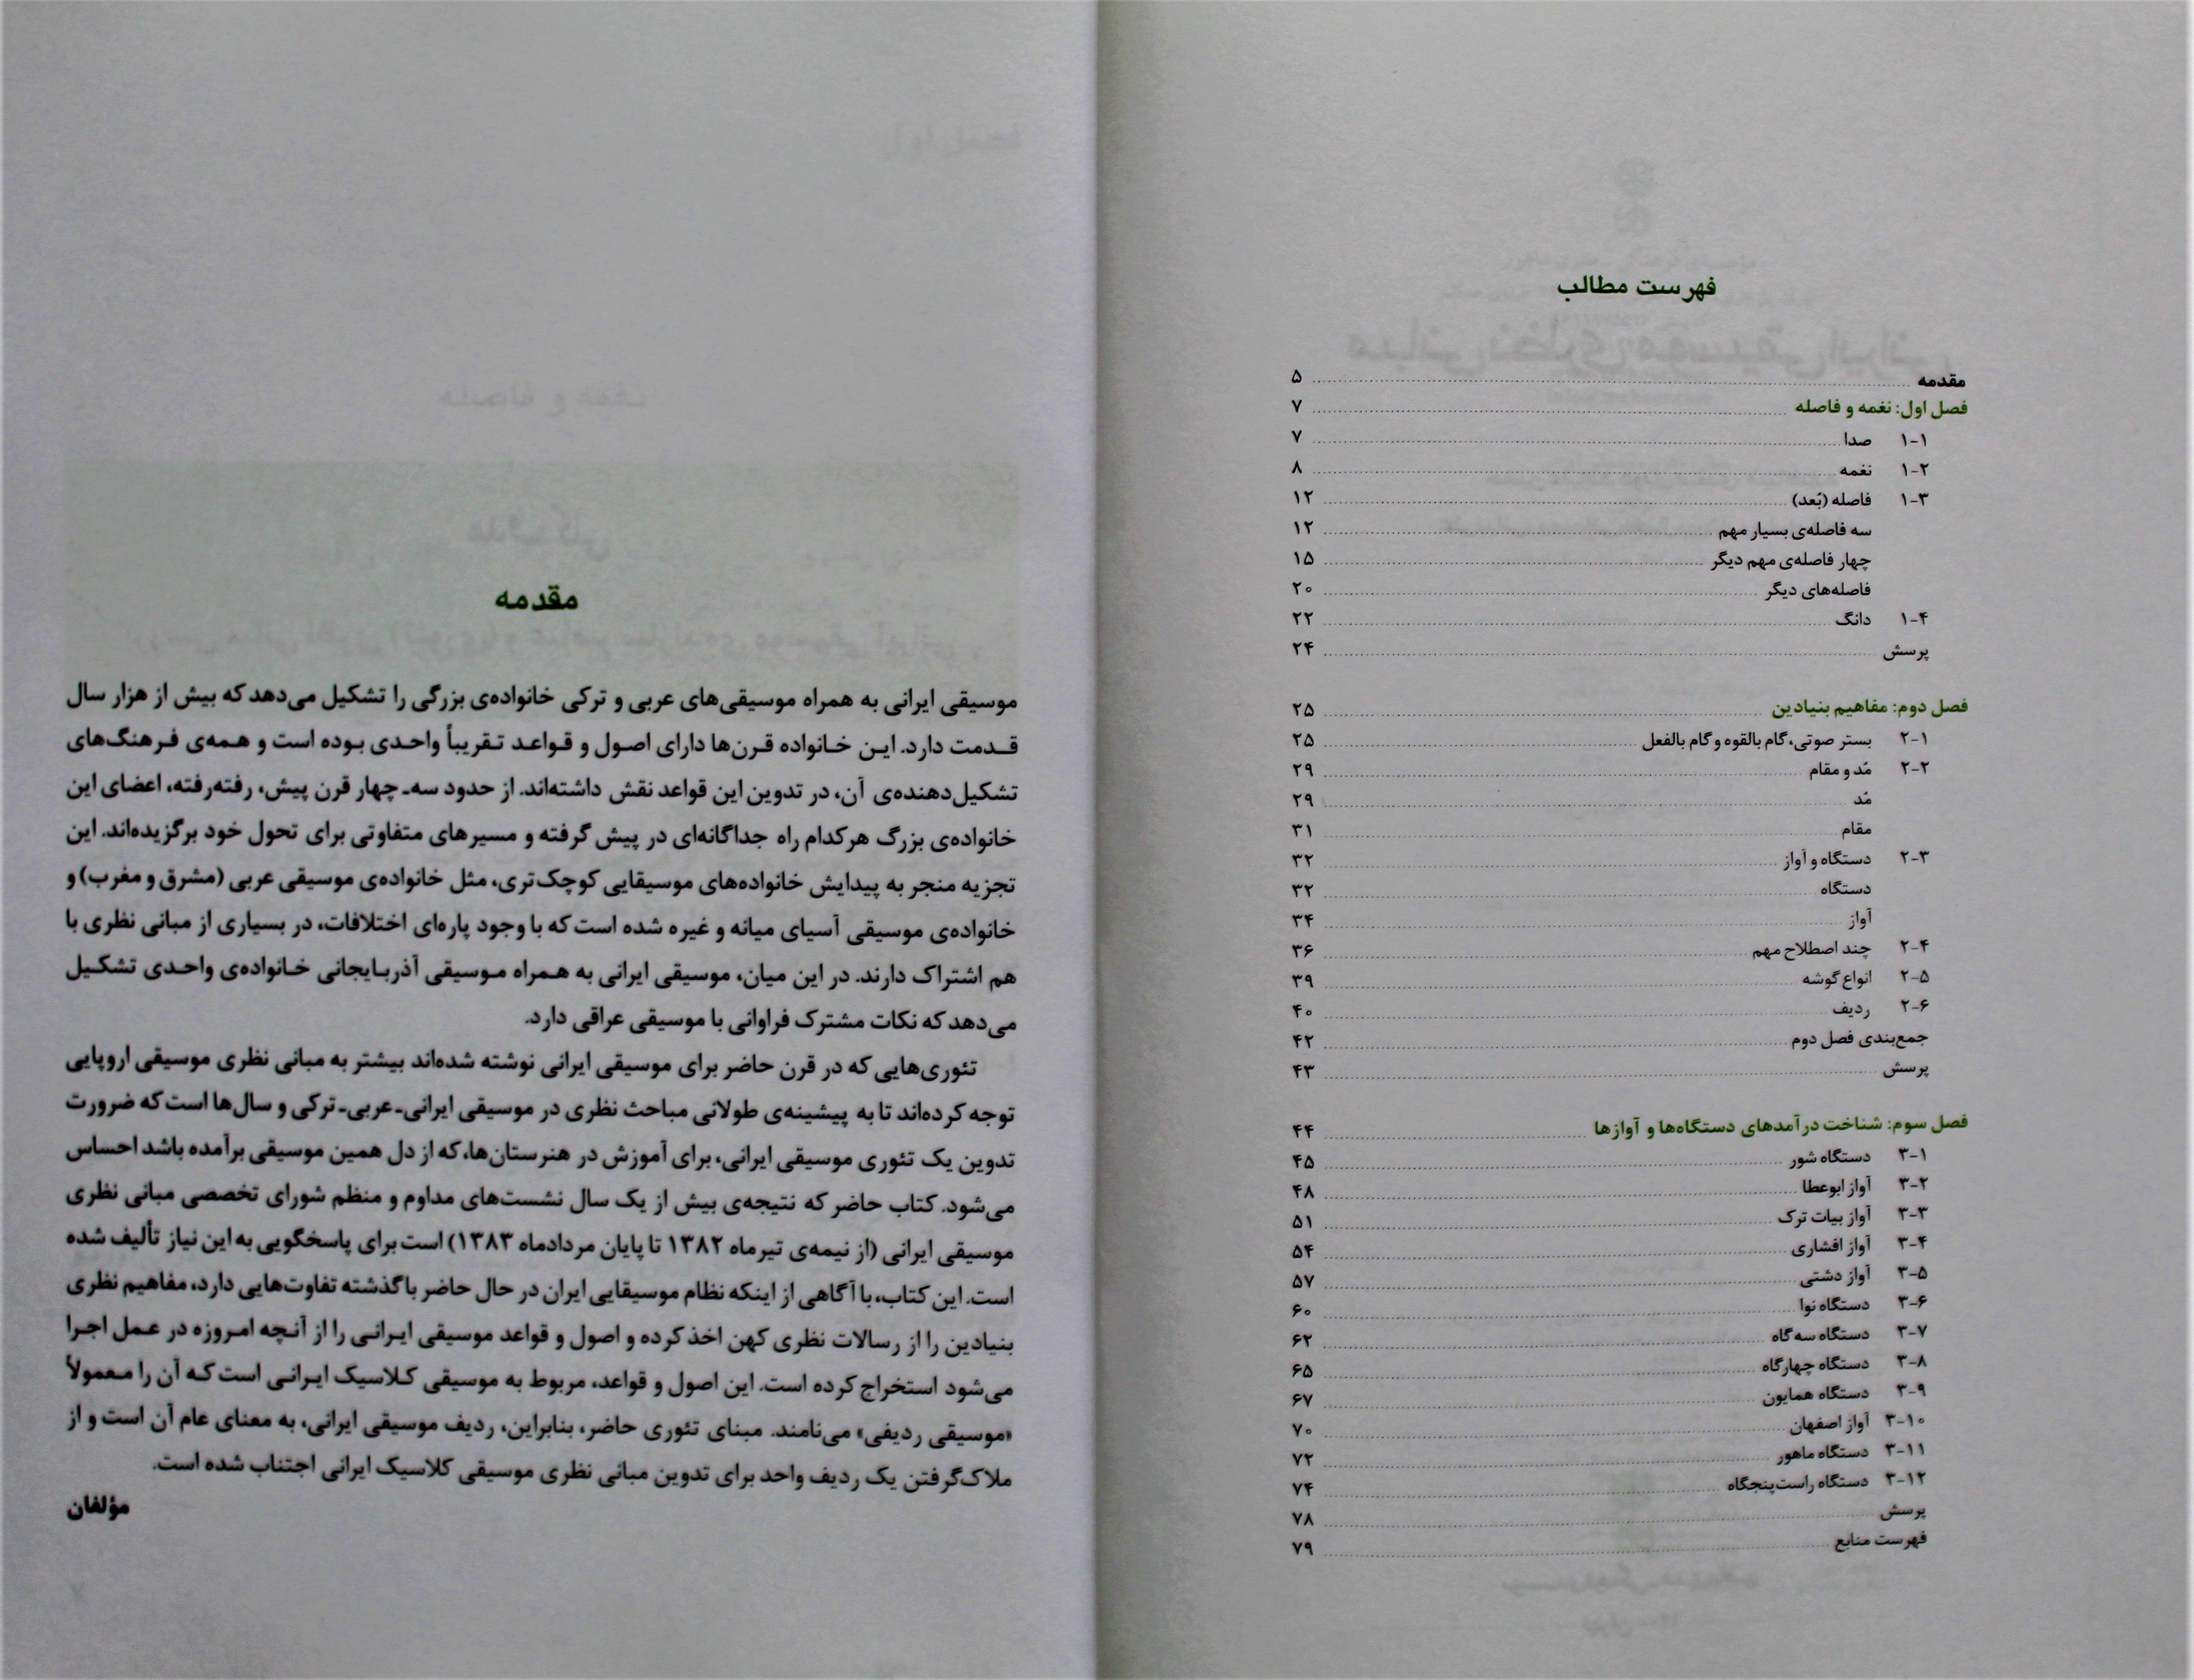 فهرست مطالب
مقدمه ........ ۵
فصل اول: نغمه و فاصله ........ ۷
۱-۱ صدا ........ ۷
۱-۲ نغمه ........ ۸
۱-۳ فاصله (بُعد) ........ ۱۲
سه فاصله‌ی بسیار مهم ........ ۱۲
چهار فاصله‌ی مهم دیگر ........ ۱۵
فاصله‌های دیگر ........ ۲۰
۱-۴ دانگ ........ ۲۲
پرسش ........ ۲۴
فصل دوم: مفاهیم بنیادین ........ ۲۵
۲-۱ بستر صوتی، گام بالقوه و گام بالفعل ........ ۲۵
۲-۲ مُد و مقام ........ ۲۹
مُد ........ ۲۹
مقام ........ ۳۱
۲-۳ دستگاه و آواز ........ ۳۲
دستگاه ........ ۳۲
آواز ........ ۳۴
۲-۴ چند اصطلاح مهم ........ ۳۶
۲-۵ انواع گوشه ........ ۳۹
۲-۶ ردیف ........ ۴۰
جمع‌بندی فصل دوم ........ ۴۲
پرسش ........ ۴۳
فصل سوم: شناخت درآمدهای دستگاه‌ها و آوازها ........ ۴۴
۳-۱ دستگاه شور ........ ۴۵
۳-۲ آواز ابوعطا ........ ۴۸
۳-۳ آواز بیات ترک ........ ۵۱
۳-۴ آواز افشاری ........ ۵۴
۳-۵ آواز دشتی ........ ۵۷
۳-۶ دستگاه نوا ........ ۶۰
۳-۷ دستگاه سه‌گاه ........ ۶۲
۳-۸ دستگاه چهارگاه ........ ۶۵
۳-۹ دستگاه همایون ........ ۶۷
۳-۱۰ آواز اصفهان ........ ۷۰
۳-۱۱ دستگاه ماهور ........ ۷۲
۳-۱۲ دستگاه راست‌پنجگاه ........ ۷۴
پرسش ........ ۷۸
فهرست منابع ........ ۷۹
مقدمه
موسیقی ایرانی به همراه موسیقی‌های عربی و ترکی خانواده‌ی بزرگی را تشکیل می‌دهد که بیش از هزار سال
قـدمت دارد. ایـن خـانواده قـرن‌ها دارای اصـول و قـواعـد تـقریباً واحـدی بـوده است و هـمه‌ی فـرهنگ‌های
تشکیل‌دهنده‌ی آن، در تدوین این قواعد نقش داشته‌اند. از حدود سه‌ـ چهار قرن پیش، رفته‌رفته، اعضای این
خانواده‌ی بزرگ هرکدام راه جداگانه‌ای در پیش گرفته و مسیرهای متفاوتی برای تحول خود برگزیده‌اند. این
تجزیه منجر به پیدایش خانواده‌های موسیقایی کوچک‌تری، مثل خانواده‌ی موسیقی عربی (مشرق و مغرب) و
خانواده‌ی موسیقی آسیای میانه و غیره شده است که با وجود پاره‌ای اختلافات، در بسیاری از مبانی نظری با
هم اشتراک دارند. در این میان، موسیقی ایرانی به هـمراه مـوسیقی آذربـایجانی خـانواده‌ی واحـدی تشکـیل
می‌دهد که نکات مشترک فراوانی با موسیقی عراقی دارد.
تئوری‌هایی که در قرن حاضر برای موسیقی ایرانی نوشته شده‌اند بیشتر به مبانی نظری موسیقی اروپایی
توجه کرده‌اند تا به پیشینه‌ی طولانی مباحث نظری در موسیقی ایرانی‌ـ عربی‌ـ ترکی و سال‌ها است که ضرورت
تدوین یک تئوری موسیقی ایرانی، برای آموزش در هنرستان‌ها، که از دل همین موسیقی برآمده باشد احساس
می‌شود. کتاب حاضر که نتیجه‌ی بیش از یک سال نشست‌های مداوم و منظم شورای تخصصی مبانی نظری
موسیقی ایرانی (از نیمه‌ی تیرماه ۱۳۸۲ تا پایان مردادماه ۱۳۸۳) است برای پاسخگویی به این نیاز تألیف شده
است. این کتاب، با آگاهی از اینکه نظام موسیقایی ایران در حال حاضر با گذشته تفاوت‌هایی دارد، مفاهیم نظری
بنیادین را از رسالات نظری کهن اخذ کرده و اصول و قواعد موسیقی ایـرانـی را از آنـچه امـروزه در عـمل اجـرا
می‌شود استخراج کرده است. این اصول و قواعد، مربوط به موسیقی کـلاسیک ایـرانـی است کـه آن را مـعمولاً
«موسیقی ردیفی» می‌نامند. مبنای تئوری حاضر، بنابراین، ردیف موسیقی ایرانی، به معنای عام آن است و از
ملاک‌گرفتن یک ردیف واحد برای تدوین مبانی نظری موسیقی کلاسیک ایرانی اجتناب شده است.
مؤلفان